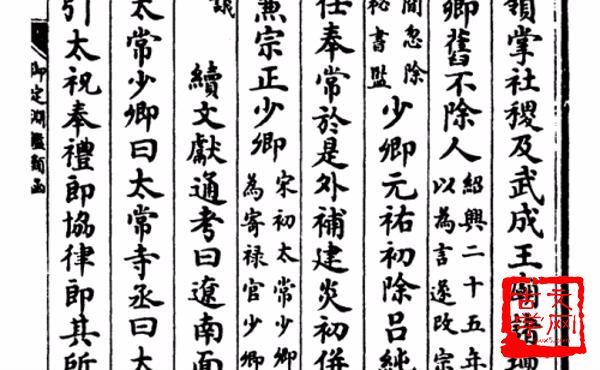 領掌社稷及武成王廟諸壇
卿舊不除人紹興二十五年
以為言遂改宗
間忽除
秘書監少卿元祐初除呂純
任奉常於是外補建炎初併
兼宗正少卿宋初太常少卿
為寄禄官少卿
續文獻通考曰遼南面
太常少卿曰太常寺丞曰太
引太祝奉禮郎協律郎其所
御定淵鑑類函